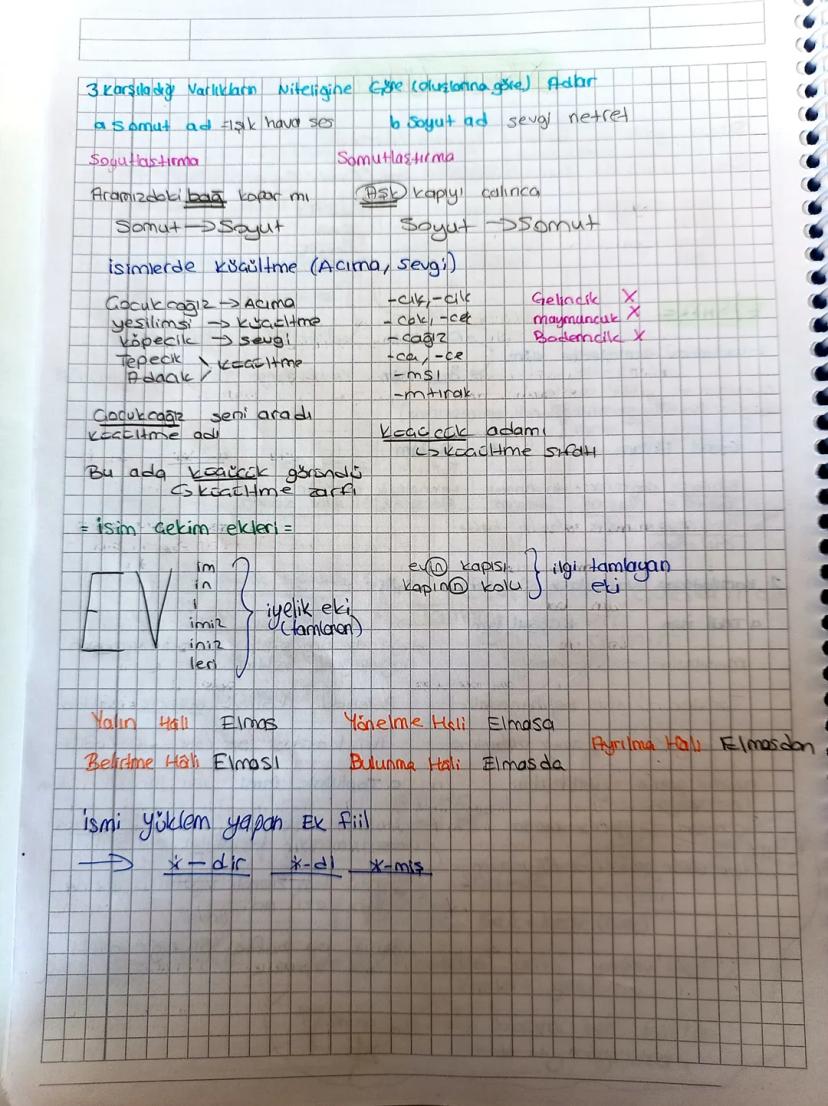 3 Karşıladığı Varlıkların Niteliğine Göre (oluşlarına göre) Adlar
a somut ad =Işık hava ses b Soyut ad sevgi nefret
Soyutlaştırma Somutlaştırma
Aramızdaki bağ kopar mı Aşk kapıyı çalınca
Somut → Soyut Soyut → Somut
isimlerde küçültme (Acıma, sevgi)
Çocukcağız → Acıma -cık, -cik Gelincik X
yeşilimsi → küçültme - cak, -cek maymuncuk X
köpecik → sevgi - cağız Bademcik X
Tepecik -ca, -ce
Adacık } küçültme -msı
-mtırak
Çocukcağız seni aradı
küçültme adı küçücük adam
↳ küçültme sıfatı
Bu ada küçücük göründü
↳ küçültme zarfı
= isim çekim ekleri =
EV
im
in
i
imiz
iniz
leri
} iyelik eki
(tamlanan)
evin kapısı
kapının kolu
} ilgi tamlayan
eki
Yalın Hali Elmas Yönelme Hali Elmasa
Ayrılma Hali Elmasdan
Belirtme Hali Elması Bulunma Hali Elmasda
ismi yüklem yapan Ek fiil
→ *-dir *-di *-miş